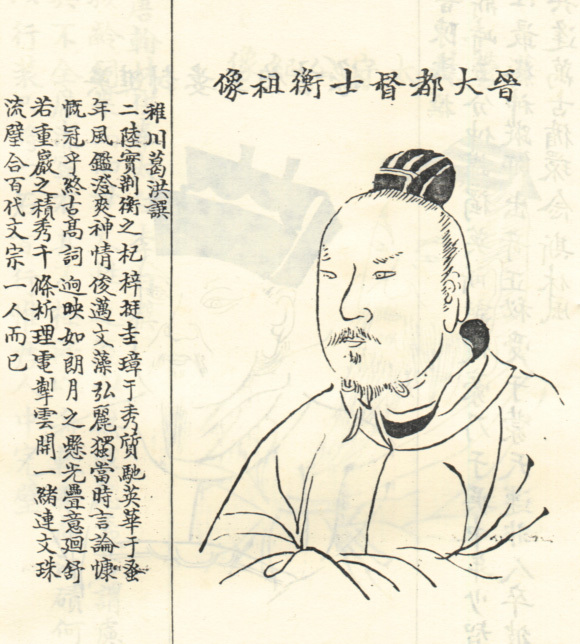 晉大都督士衡祖像
稚川葛洪譔
二陸實荆衡之杞梓挺圭璋于秀質馳英華于蚤
年風鑑澄爽神情俊邁文藻弘麗獨當時言論慷
慨冠乎終古高詞逈映如朗月之懸光疊意廻舒
若重巖之積秀千條析理電掣雲開一緒連文珠
流璧合百代文宗一人而已